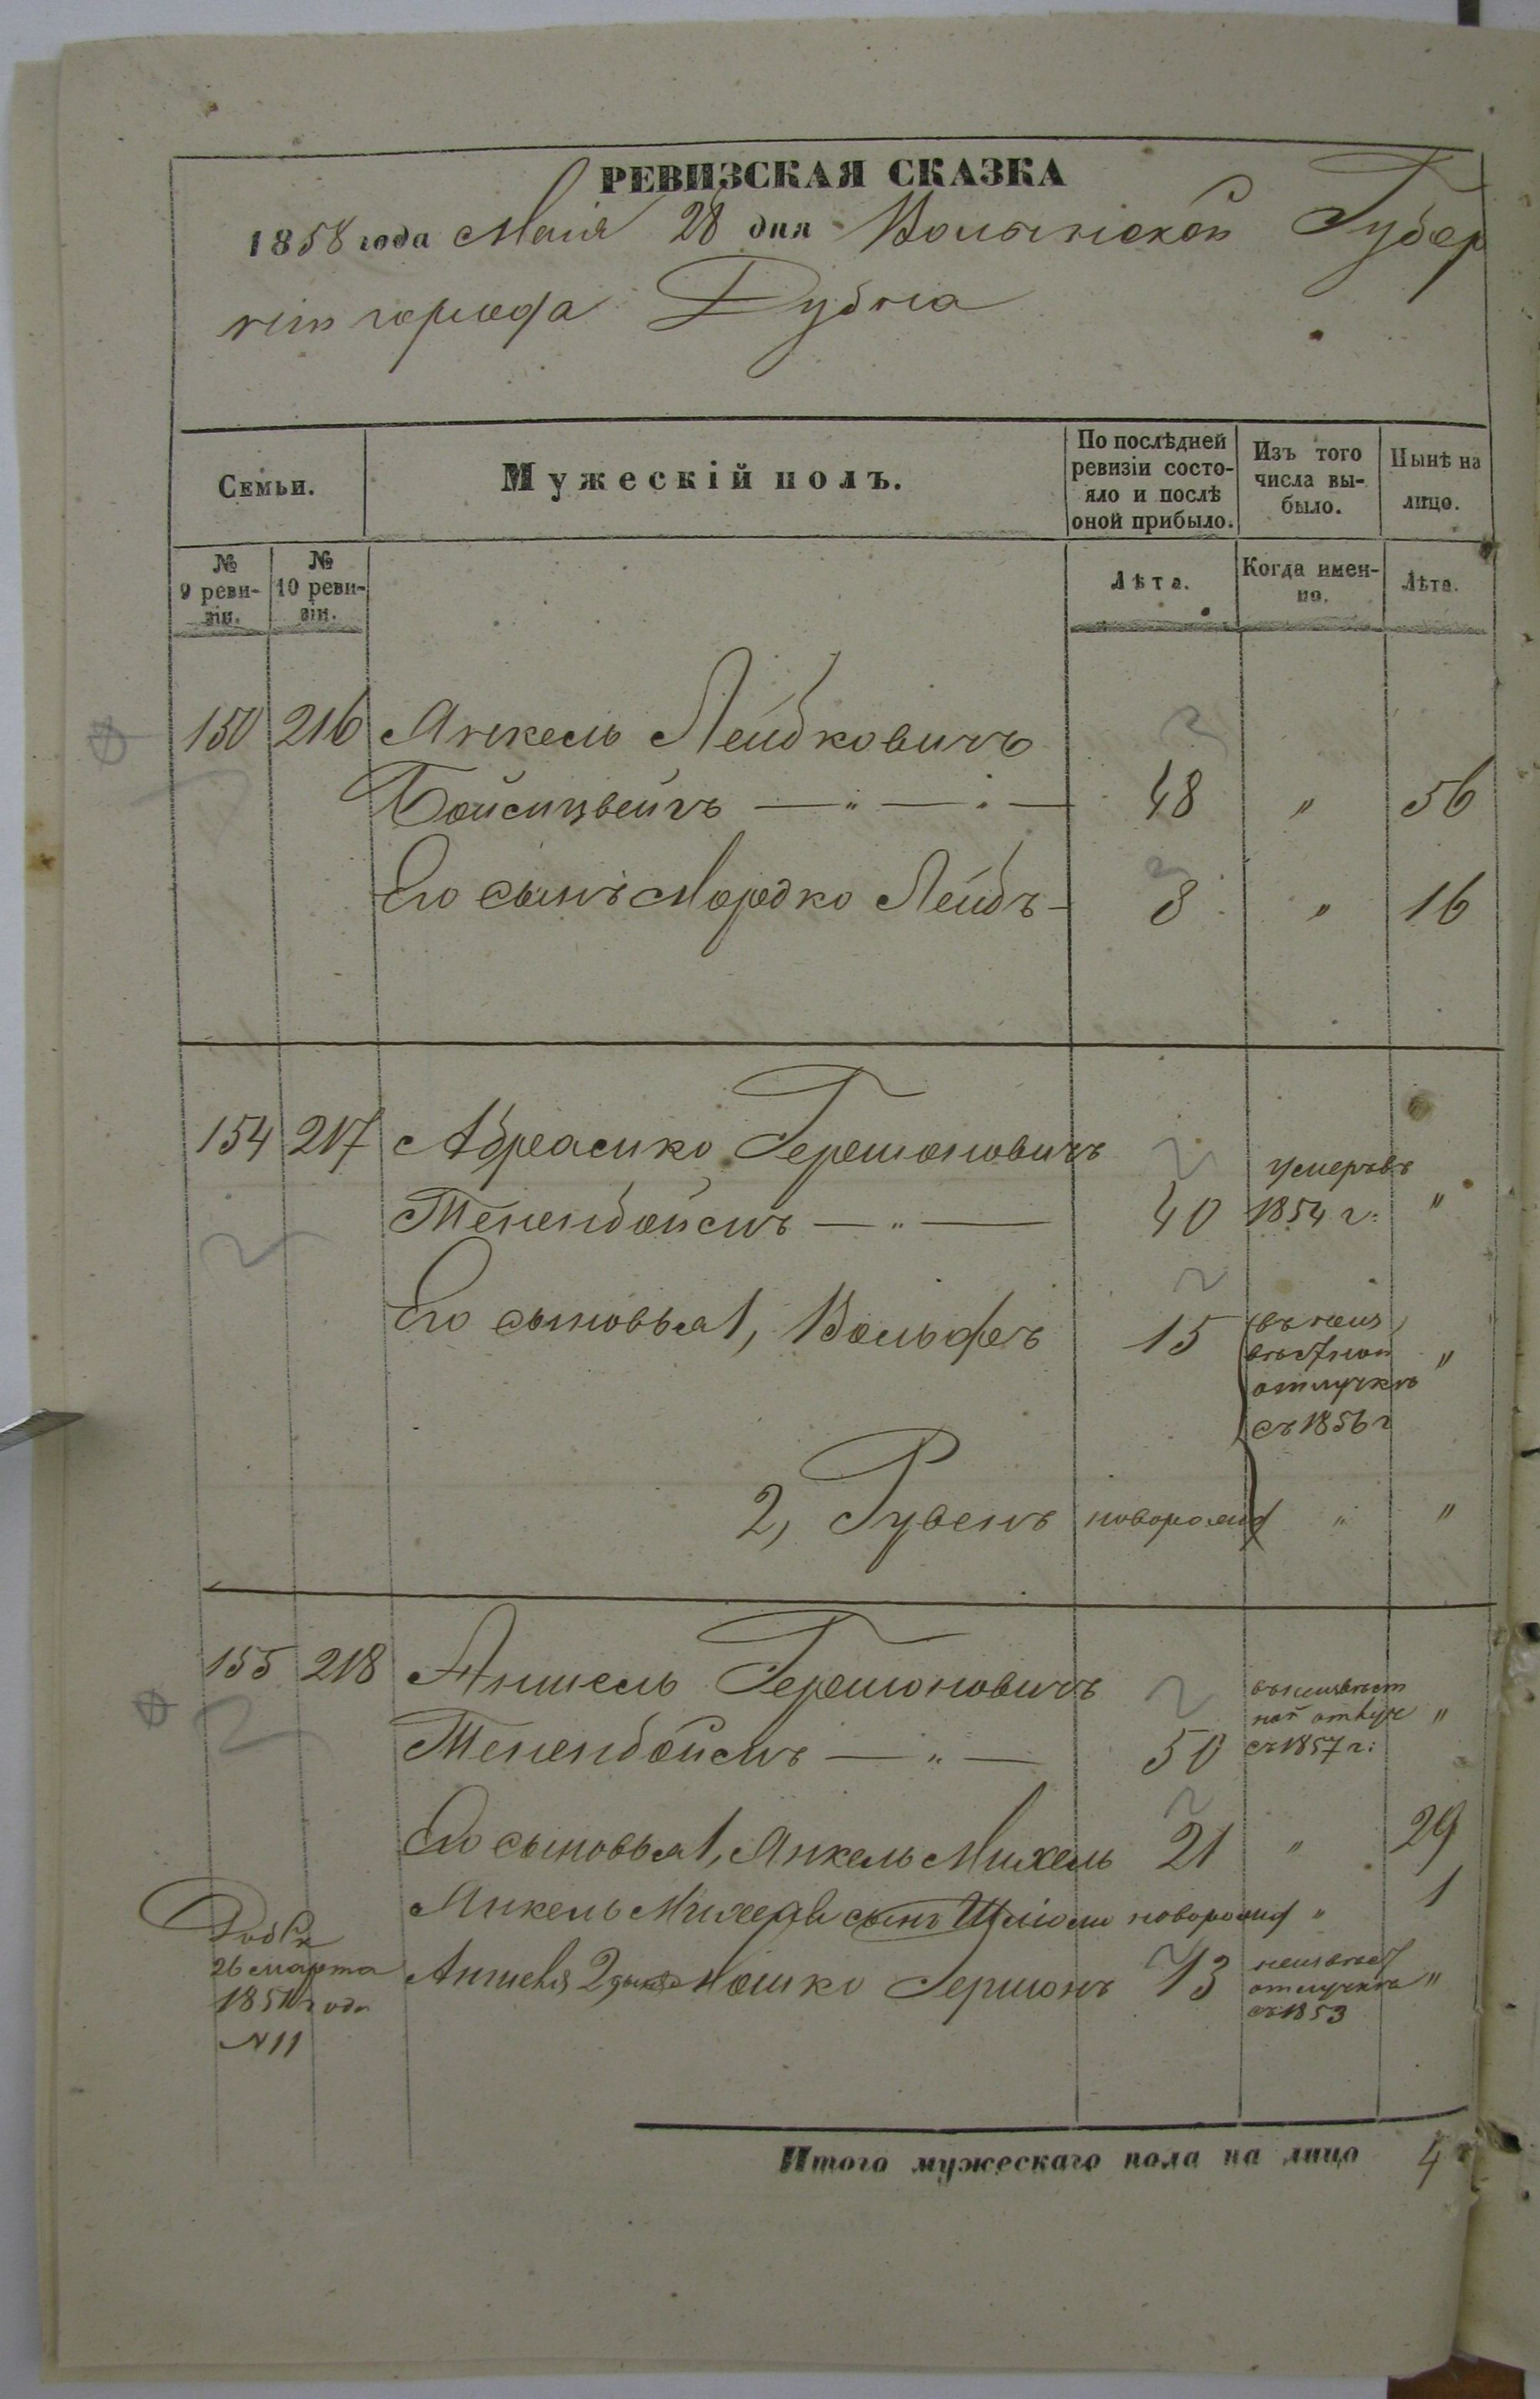 РЕВИЗСКАЯ СКАЗКА
1858 года Маія 28 дня Волынской Губер
ніи города Дубна
Семьи.
Мужескій полъ.
По послѣдней ревизіи состо-
яло и послѣ
оной прибыло.
Изъ того
числа вы-
было.
Нынѣ на
лицо.
№
9 реви-
зіи.
№
10 реви-
зіи.
Лѣта.
Когда имен-
но.
Лѣта.
150 216 Янкель Лейбковичъ
Боймцвейгъ — " — " — 48 " 56
Его сынъ Мордко Лейбъ - 8 " 16
154 217 Абрамко Гершоновичъ умеръ въ
Тененбоймъ — " — 40 1854 г: "
Его сыновья 1, Вольфъ 15 въ неиз
вѣстной "
отлучкѣ
съ 1856 г
2, Рувенъ новорожд " "
155 218 Аншель Гершоновичъ въ неизвѣст
ной отлуч "
Тененбоймъ — " — 50 съ 1857 г:
Его сыновья 1, Янкель Михель 21 " 29
Янкель Михеля сынъ Шліома новорожд " 1
Аншеля 2 сынъ Мошко Гершонъ 13 неизвѣст
отлучкѣ "
съ 1853
26 марта
1851 года
N 11
Итого мужескаго пола на лицо 4